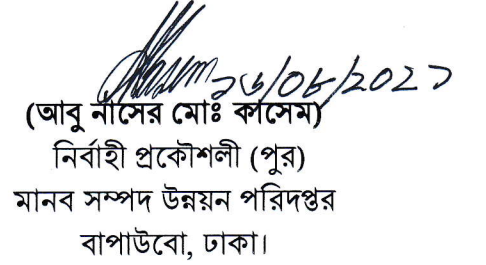 ১৬/০৮/২০২১
(আবু নাসের মোঃ কাসেম)
নির্বাহী প্রকৌশলী (পুর)
মানব সম্পদ উন্নয়ন পরিদপ্তর
বাপাউবো, ঢাকা।